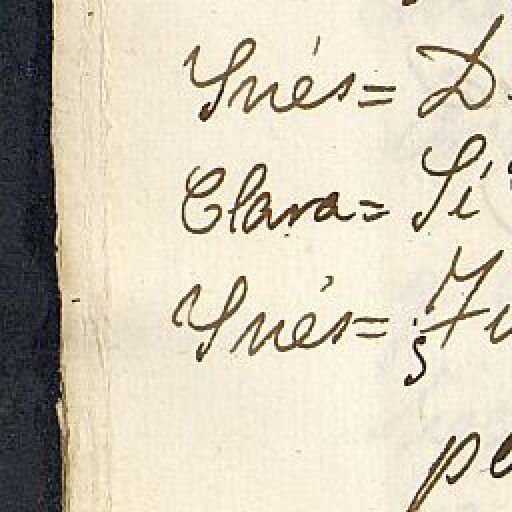 Inés= D.
Clara= Sí
Inés=
pe